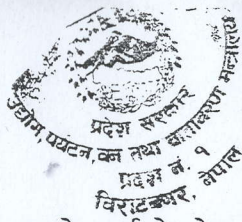 प्रदेश सरकार
उद्योग, पर्यटन, वन तथा वातावरण मन्त्रालय
प्रदेश नं. १
विराटनगर, नेपाल